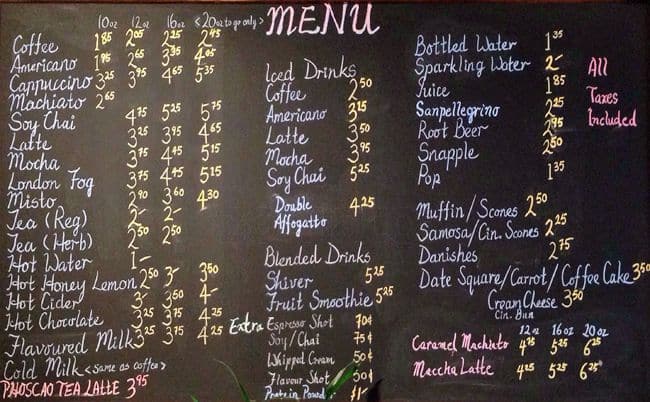 MENU
10 oz 12 oz 16 oz <20 oz to go only>
Coffee 1.85 2.05 2.25 2.45
Americano 1.95 2.65 3.35 4.05
Cappuccino 3.25 3.95 4.65 5.35
Machiato 2.65
Soy Chai 4.75 5.25 5.75
Latte 3.25 3.95 4.65
Mocha 3.75 4.45 5.15
London Fog 3.75 4.45 5.15
Misto 2.90 3.60 4.30
Tea (Reg) 2- 2-
Tea (Herb) 2.50 2.50
Hot Water 1-
Hot Honey Lemon 2.50 3- 3.50
Hot Cider 3- 3.50 4-
Hot Chocolate 3.25 3.75 4.25
Flavoured Milk 3.25 3.75 4.25
Cold Milk <same as coffee>
PHOSCAO TEA LATTE 3.95
Iced Drinks
Coffee 2.50
Americano 3.15
Latte 3.50
Mocha 3.95
Soy Chai 5.25
Double 4.25
Affogatto
Blended Drinks
Shiver 5.25
Fruit Smoothie 5.25
Extra Espresso Shot 70¢
Soy/Chai 75¢
Whipped Cream 50¢
Flavour Shot 50¢
Protein Powder $1-
Bottled Water 1.35
Sparkling Water 2-
Juice 1.85
Sanpellegrino 2.25
Root Beer 2.95
Snapple 2.50
Pop 1.35
All
Taxes
Included
Muffin/Scones 2.50
Samosa/Cin. Scones 2.25
Danishes 2.75
Date Square/Carrot/Coffee Cake 3.50
Cream Cheese 3.50
Cin. Bun
12 oz 16 oz 20 oz
Caramel Machiato 4.75 5.25 6.25
Maccha Latte 4.25 5.25 6.25